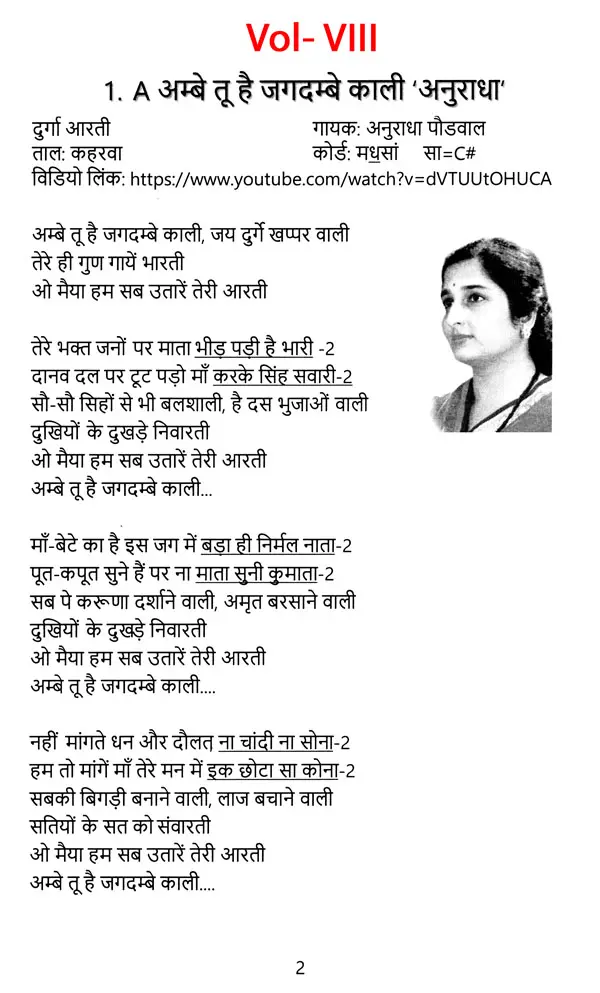 Vol- VIII
1. A अम्बे तू है जगदम्बे काली ‘अनुराधा’
दुर्गा आरती
गायक: अनुराधा पौडवाल
ताल: कहरवा
कोर्ड: मधसां सा=C#
विडियो लिंक: https://www.youtube.com/watch?v=dVTUUtOHUCA
अम्बे तू है जगदम्बे काली, जय दुर्गे खप्पर वाली
तेरे ही गुण गायें भारती
ओ मैया हम सब उतारें तेरी आरती
तेरे भक्त जनों पर माता भीड़ पड़ी है भारी -2
दानव दल पर टूट पड़ो माँ करके सिंह सवारी-2
सौ-सौ सिहों से भी बलशाली, है दस भुजाओं वाली
दुखियों के दुखड़े निवारती
ओ मैया हम सब उतारें तेरी आरती
अम्बे तू है जगदम्बे काली...
माँ-बेटे का है इस जग में बड़ा ही निर्मल नाता-2
पूत-कपूत सुने हैं पर ना माता सुनी कुमाता-2
सब पे करूणा दर्शाने वाली, अमृत बरसाने वाली
दुखियों के दुखड़े निवारती
ओ मैया हम सब उतारें तेरी आरती
अम्बे तू है जगदम्बे काली....
नहीं मांगते धन और दौलत, ना चांदी ना सोना-2
हम तो मांगें माँ तेरे मन में इक छोटा सा कोना-2
सबकी बिगड़ी बनाने वाली, लाज बचाने वाली
सतियों के सत को संवारती
ओ मैया हम सब उतारें तेरी आरती
अम्बे तू है जगदम्बे काली....
2